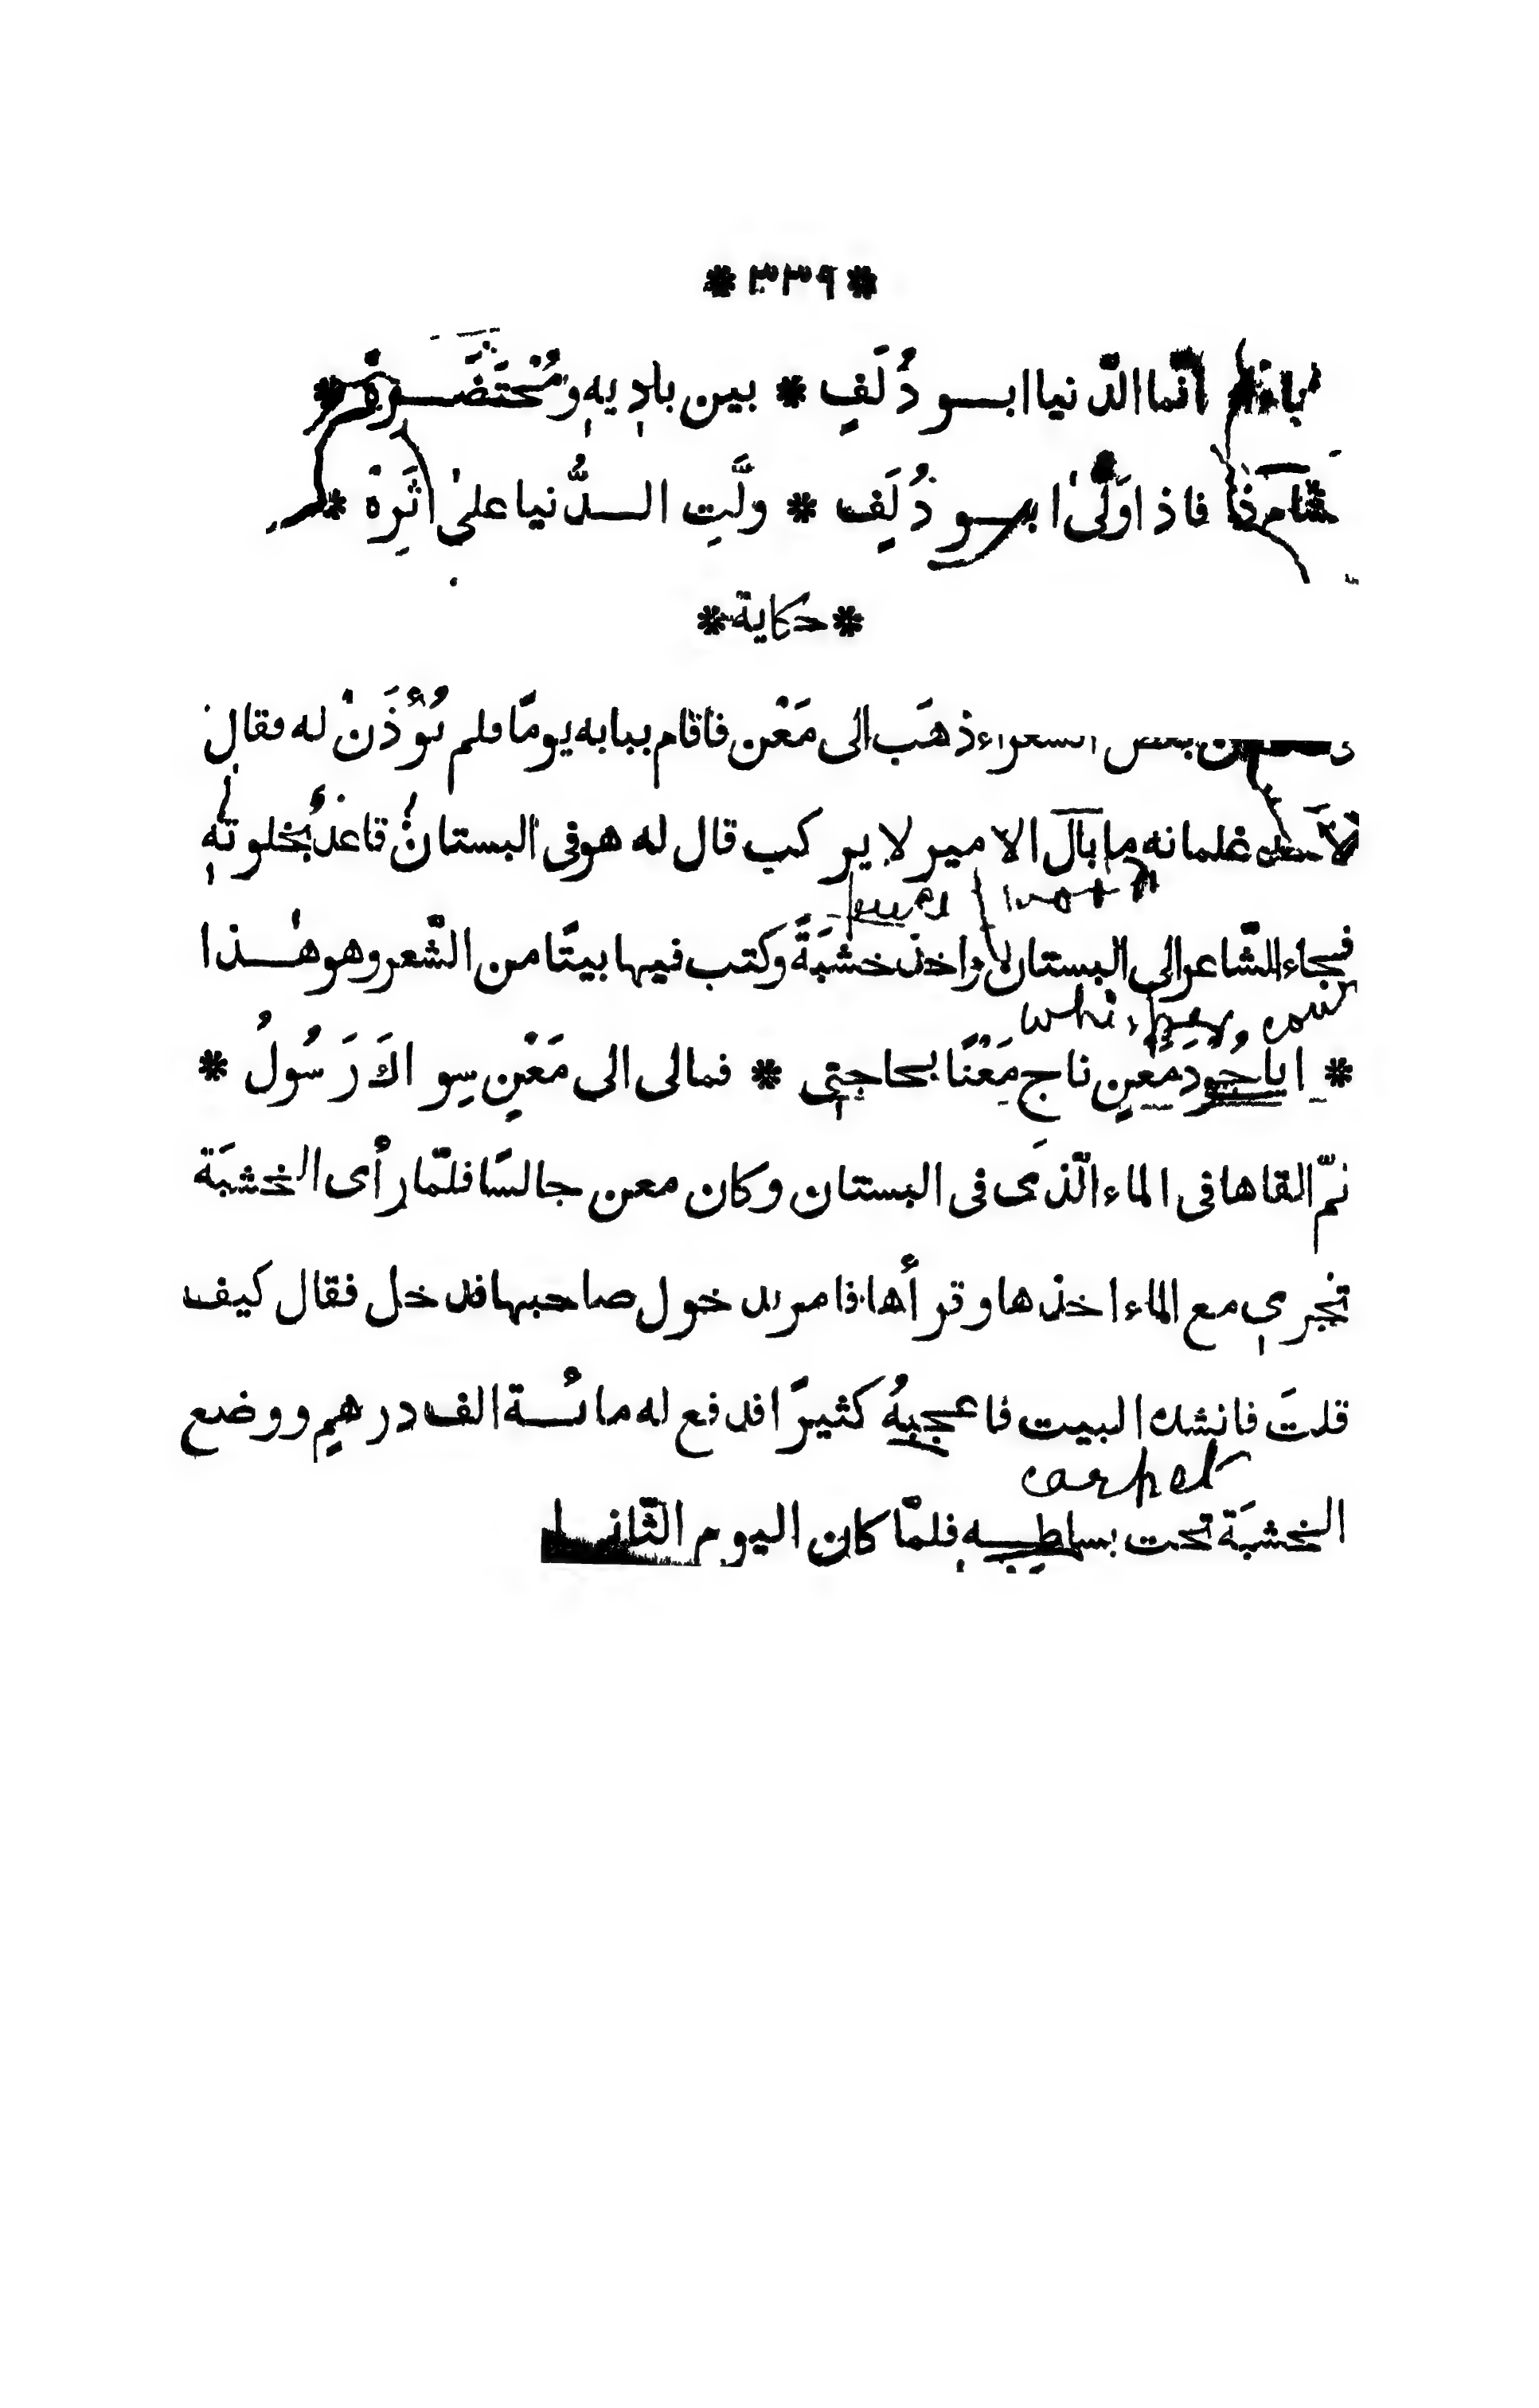 * ٣٣٩ *
انّما الدّنيا ابو دُلَفٍ * بين باديهِ ومُحْتَضَرِهْ *
فاذا وَلّٰى ابو دُلَفٍ * ولَّتِ الدُّنيا علىٰ اثَرِهْ *
* حكاية *
بعض الشعراء ذهَب الى مَعْن فاقام ببابه يومًا فلم يُؤْذَنْ له فقال
غلمانه ما بال الامير لا يركب قال له هو فى البستان قاعدٌ بخلوتهٖ
فجاء الشّاعر الى البستان واخذ خشبَةً وكتب فيها بيتًا من الشّعر وهو هٰذا
* ايا جُودَ مَعْنٍ ناجِ مَعْنًا بحاجتى * فمالى الى مَعْنٍ سِواكَ رَسُولُ *
ثمّ القاها فى الماء الّذى فى البستان وكان معن جالسًا فلمّا رأى الخشبَة
تجرى مع الماء اخذها وقرأها فامر بدخول صاحبها فدخل فقال كيف
قلتَ فانشد البيت فاعجبهُ كثيرًا فدفع له مائة الف درهم ووضع
carpet
الخشبَة تحت بساطهٖ فلمّا كان اليوم الثّانى